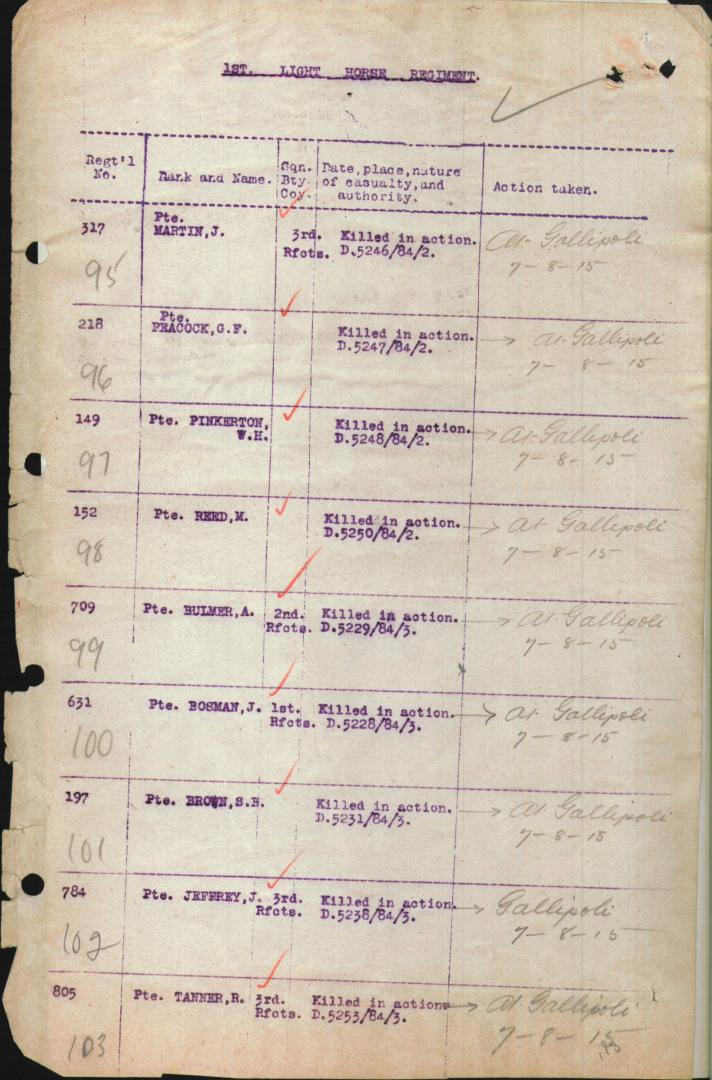 1ST. LIGHT HORSE REGIMENT.
Regt'l No. Rank and Name. Sqn. Bty. Coy. Date, place, nature of casualty, and authority. Action taken.
317 Pte. MARTIN, J. 3rd. Killed in action. At Gallipoli
Rfcts. D.5246/84/2. 7-8-15
95
218 Pte. PEACOCK, G.F. Killed in action. At Gallipoli
D.5247/84/2. 7-8-15
96
149 Pte. PINKERTON, Killed in action. At Gallipoli
W.H. D.5248/84/2. 7-8-15
97
152 Pte. REED, M. Killed in action. At Gallipoli
D.5250/84/2. 7-8-15
98
709 Pte. BULMER, A. 2nd. Killed in action. At Gallipoli
Rfcts. D.5229/84/3. 7-8-15
99
631 Pte. BOSMAN, J. 1st. Killed in action. At Gallipoli
Rfcts. D.5228/84/3. 7-8-15
100
197 Pte. BROWN, S.B. Killed in action. At Gallipoli
D.5231/84/3. 7-8-15
101
784 Pte. JEFFREY, J. 3rd. Killed in action. Gallipoli
Rfcts. D.5238/84/3. 7-8-15
102
805 Pte. TANNER, R. 3rd. Killed in action At Gallipoli
Rfcts. D.5253/84/3. 7-8-15
103